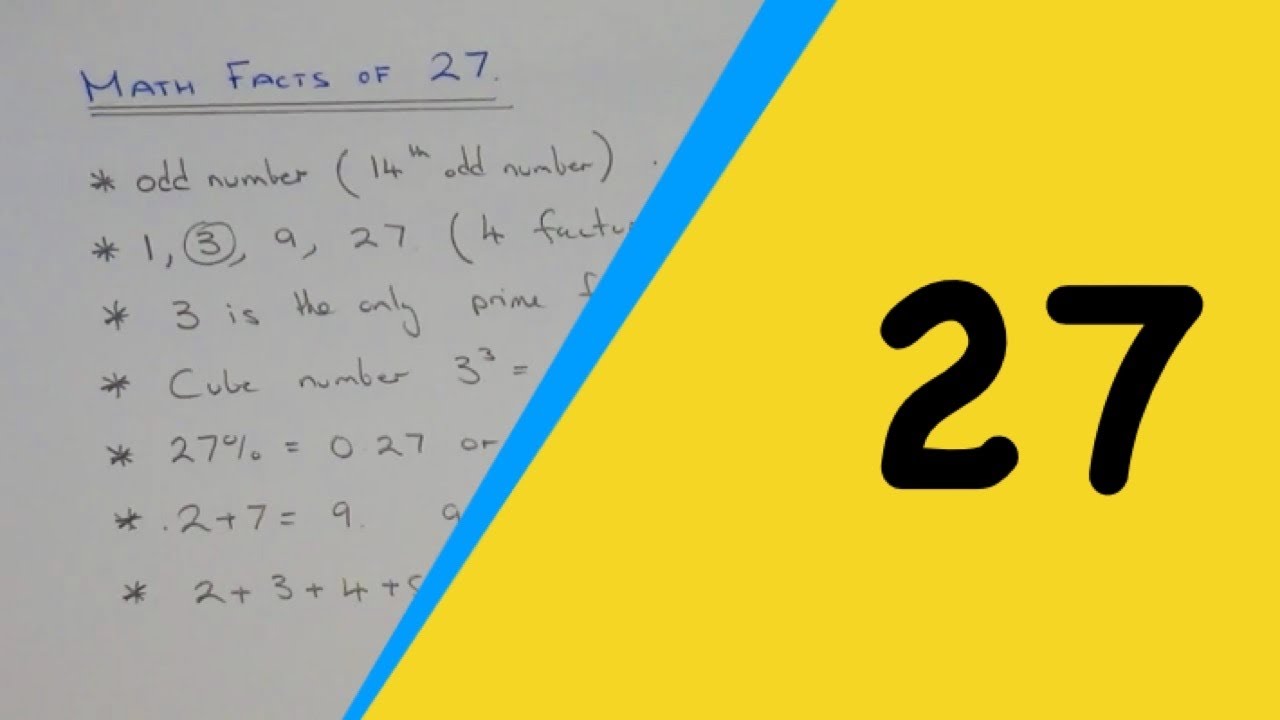 MATH FACTS OF 27.
* odd number (14th odd number).
* 1, 3, 9, 27 (4
* 3 is the only prime
* Cube number 3³ =
* 27% = 0.27 or
* .2+7= 9.
* 2+3+4+
27